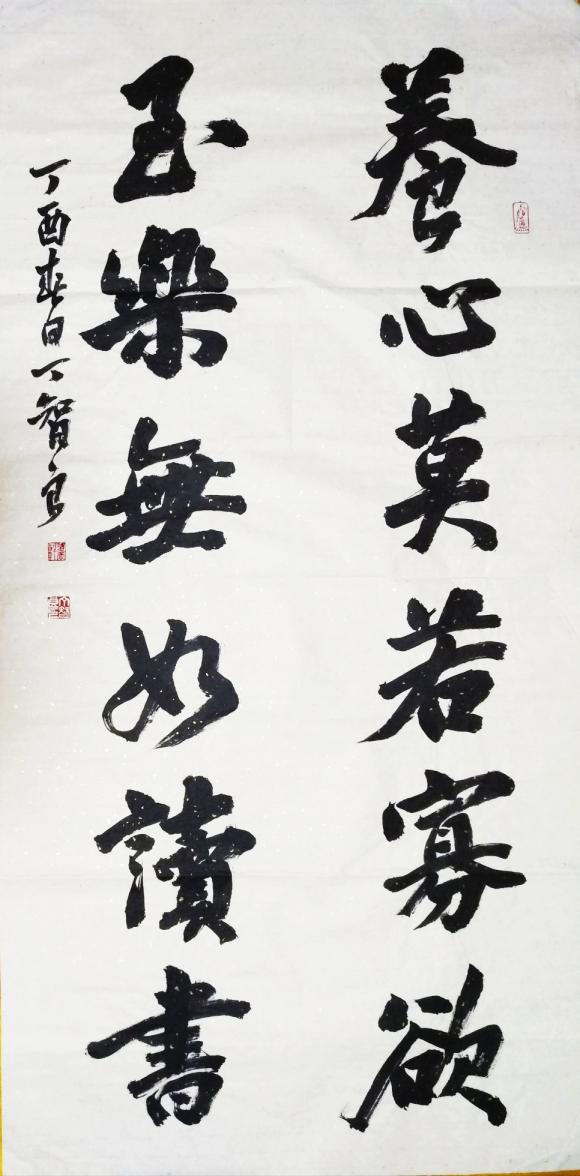 養心莫若寡欲
至樂無如讀書
丁酉春日丁智良